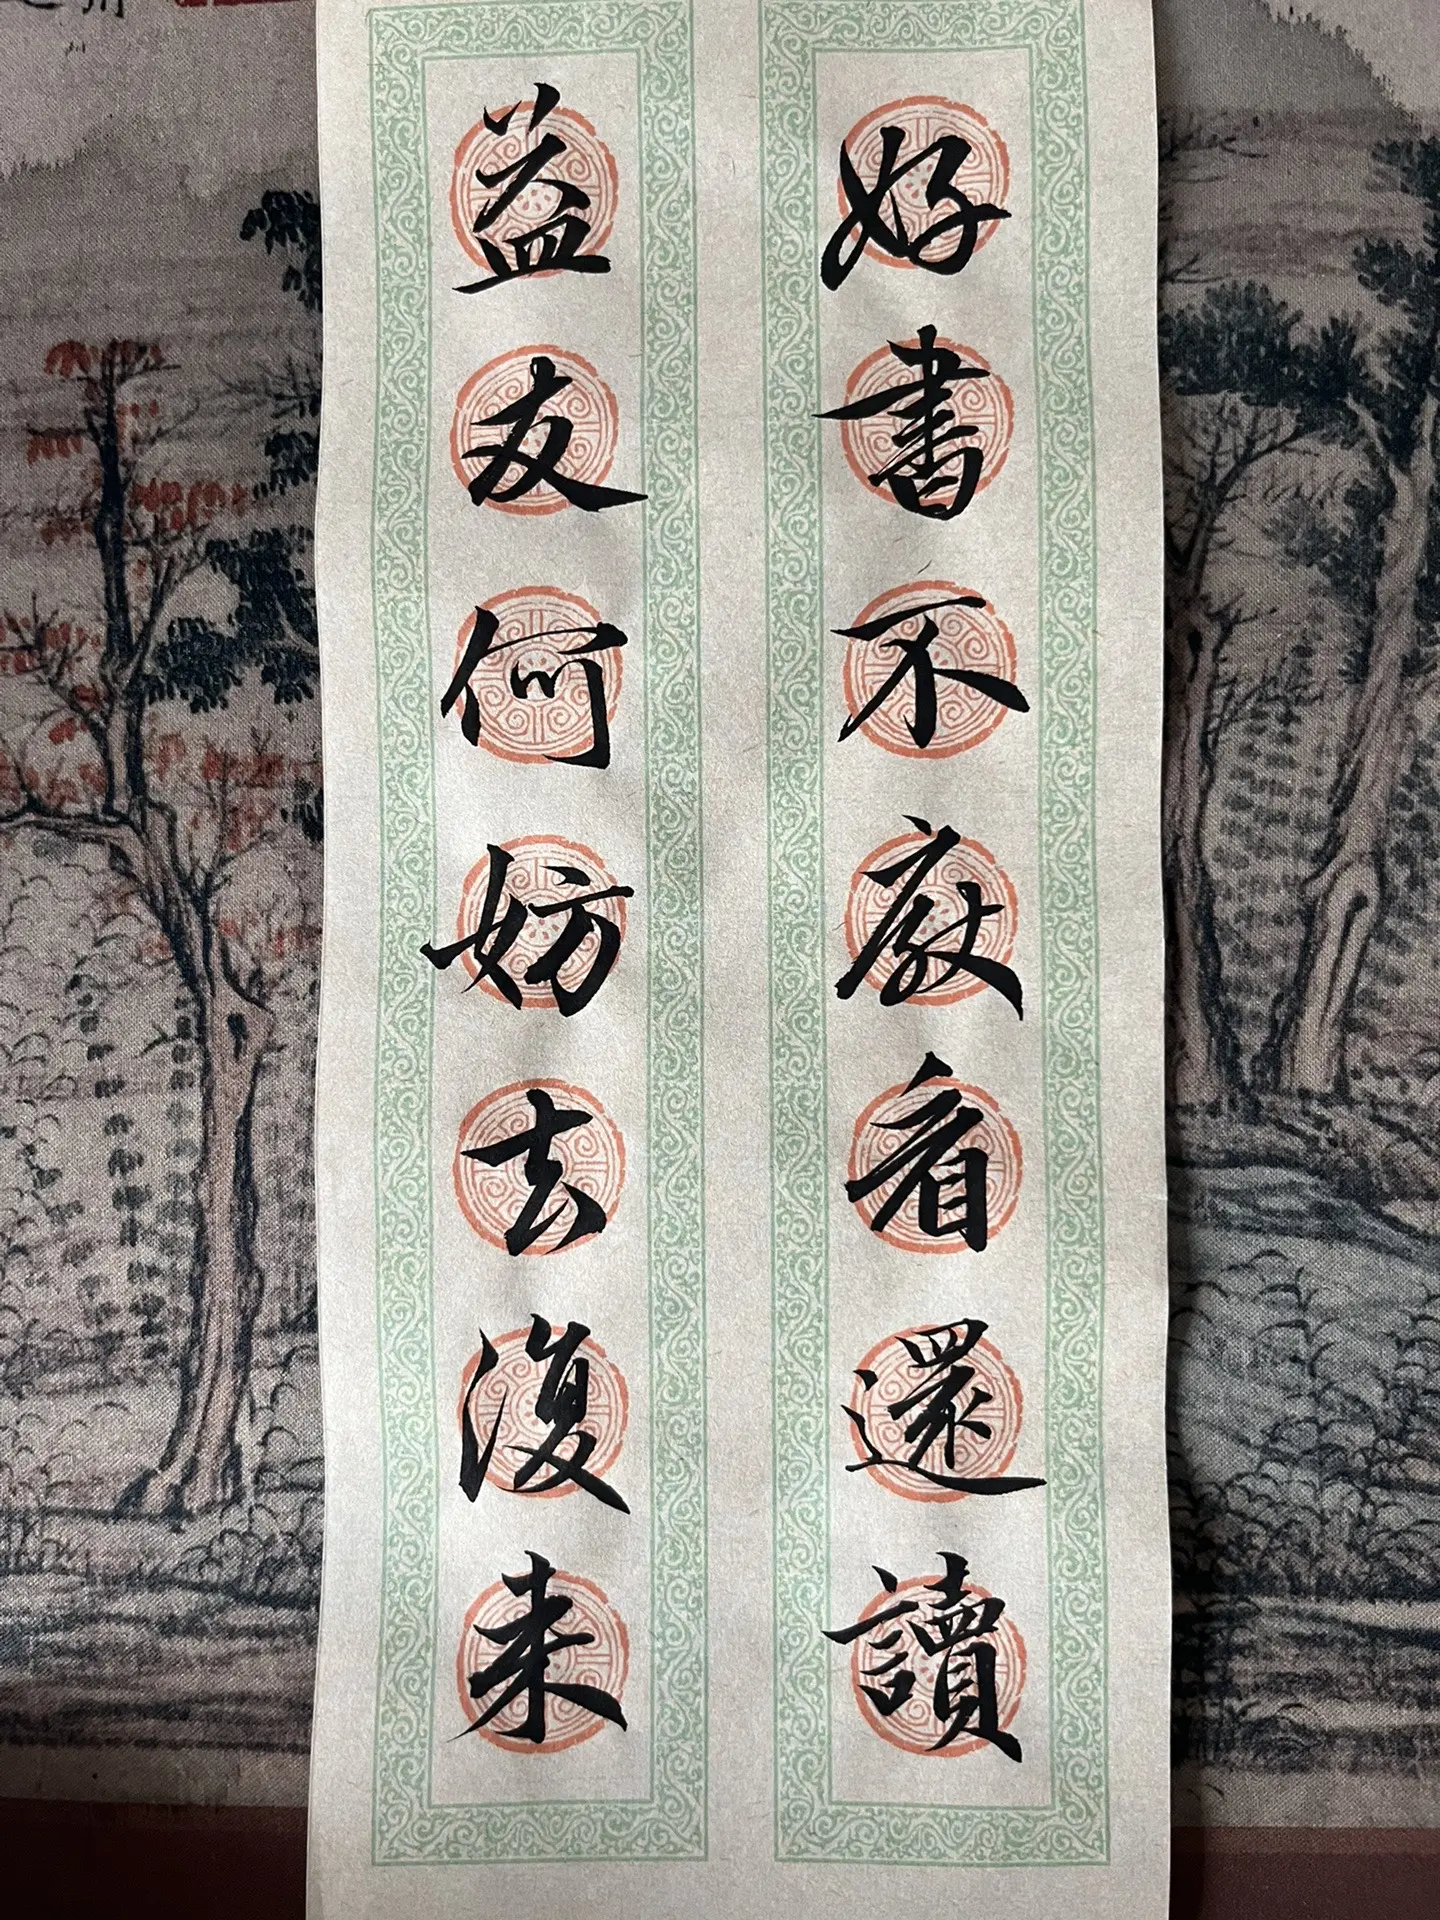 好書不厭看還讀
益友何妨去復来